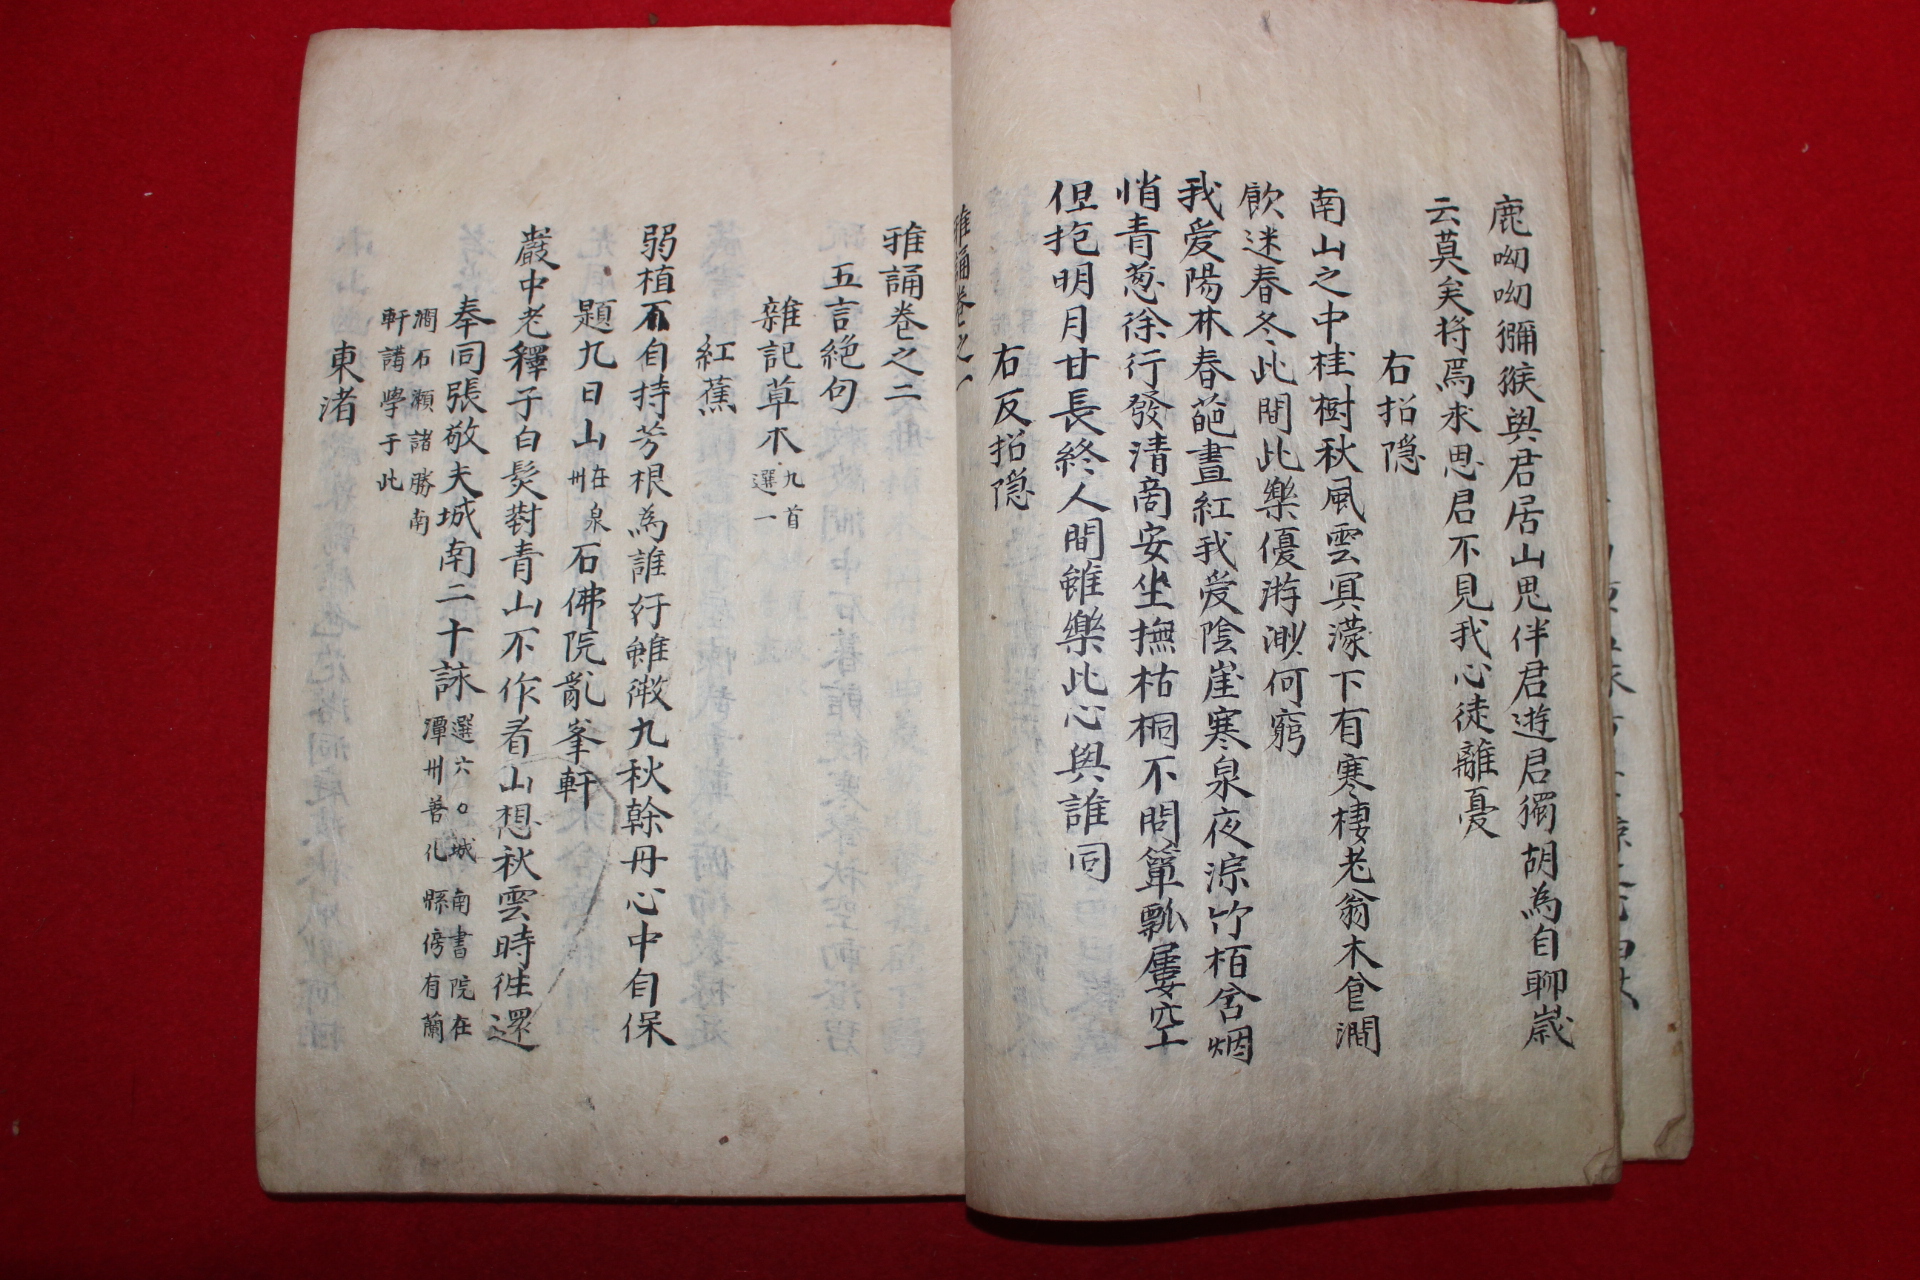 鹿呦呦獼猴與君居山鬼伴君遊君獨胡為自聊歲
云莫矣將焉求思君不見我心徒離憂
右招隐
南山之中桂樹秋風雲冥濛下有寒棲老翁木食澗
飲迷春冬此間此樂優游渺何窮
我愛陽林春葩晝紅我愛陰崖寒泉夜淙竹栢含烟
悄青葱徐行發清商安坐撫枯桐不問簞瓢屢空
但抱明月甘長終人間雖樂此心與誰同
右反招隐
雅誦卷之一
雅誦卷之二
五言絕句
雜記草木九首
選一
紅蕉
弱植不自持芳根為誰好雖微九秋榦丹心中自保
題九日山在泉
州石佛院亂峯軒
巖中老釋子白髮對青山不作看山想秋雲時徃還
奉同張敬夫城南二十詠選六○城南書院在
潭州善化縣傍有蘭
澗石瀨諸勝南
軒講學于此
東渚